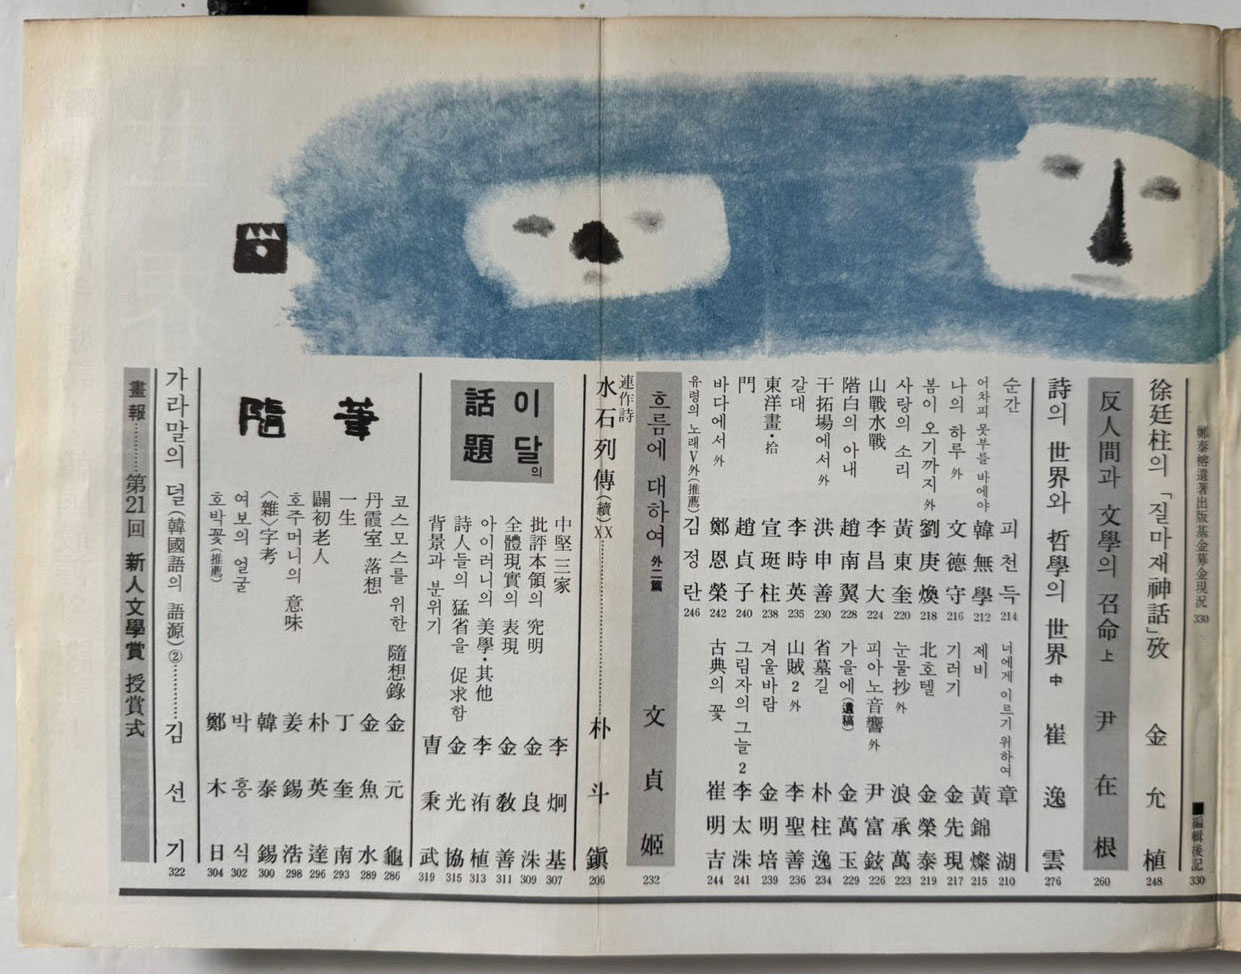 鄭泰榕遺著出版基金募金現況 330
■編輯後記 330
徐廷柱의「질마재神話」攷 金允植 248
反人間과 文學의 召命 上 尹在根 260
詩의 世界와 哲學의 世界 中 崔逸雲 276
순간 피천득 214
너에게 이르기 위하여 章湖 210
어차피 못부를 바에야 韓無學 212
제비 黃錦燦 215
나의 하루 外 文德守 216
기러기 金先現 217
봄이 오기까지 外 劉庚煥 218
北호텔 金榮泰 219
사랑의 소리 黃東奎 220
눈물抄 外 浪承萬 223
山戰水戰 李昌大 224
피아노音響 外 尹富鉉 226
階白의 아내 趙南翼 228
가을에(遺稿) 金萬玉 229
干拓場에서 外 洪申善 230
省墓길 朴柱逸 234
갈대 李時英 235
山賊2 外 李聖善 236
東洋畫·拾 宣珽柱 238
겨울바람 金明培 239
門 趙貞子 240
그림자의 그늘 2 李太洙 241
바다에서 外 鄭恩榮 242
古典의 꽃 崔明吉 244
유령의 노래V外(推薦) 김정란 246
흐름에 대하여 外二篇 文貞姬 232
連作詩
水石列傳(續)XX 朴斗鎭 206
이달의
話題
中堅三家 李炯基 307
批評本領의 究明 金良洙 309
全體現實의 表現 金敎善 311
아이러니의 美學·其他 李洧植 313
詩人들의 猛省을 促求함 金光協 315
背景과 분위기 曺秉武 319
隨筆
코스모스를 위한 隨想錄 金元龜 286
丹霞室 落想 金魚水 289
一生 丁奎南 293
闢初老人 朴英達 296
호주머니의 意味 姜錫浩 298
〈雜〉字考 韓泰錫 300
여보의 얼굴 박홍식 302
호박꽃(推薦) 鄭木日 304
가라말의 덜(韓國語의 語源)② 김선기 322
畫報 第21回 新人文學賞 授賞式